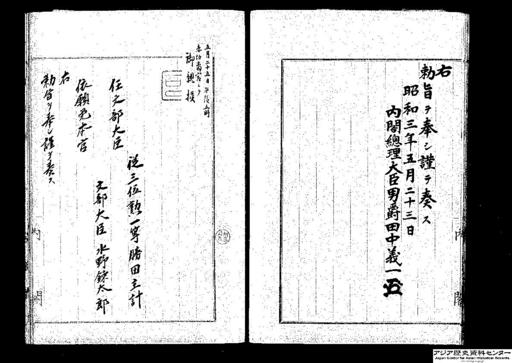 右
勅旨ヲ奉シ謹テ奏ス
昭和三年五月二十三日
内閣總理大臣男爵田中義一
五月二十五日
御親授
従三位勲一等勝田主計
任文部大臣
文部大臣水野錬太郎
依願免本官
右
勅旨ヲ奉シ謹テ奏ス
内閣
内閣
アジア歴史資料センター
Japan Center for Asian Historical Records